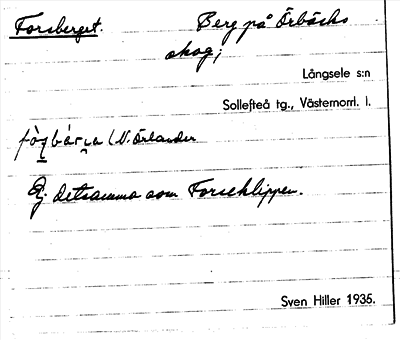 Forsberget. Berg på Örbäcks
skog;
Långsele s:n
Sollefteå tg., Västernorrl. l.
(N. Örlander
Ej detsamma som Forseklippen.
Sven Hiller 1935.